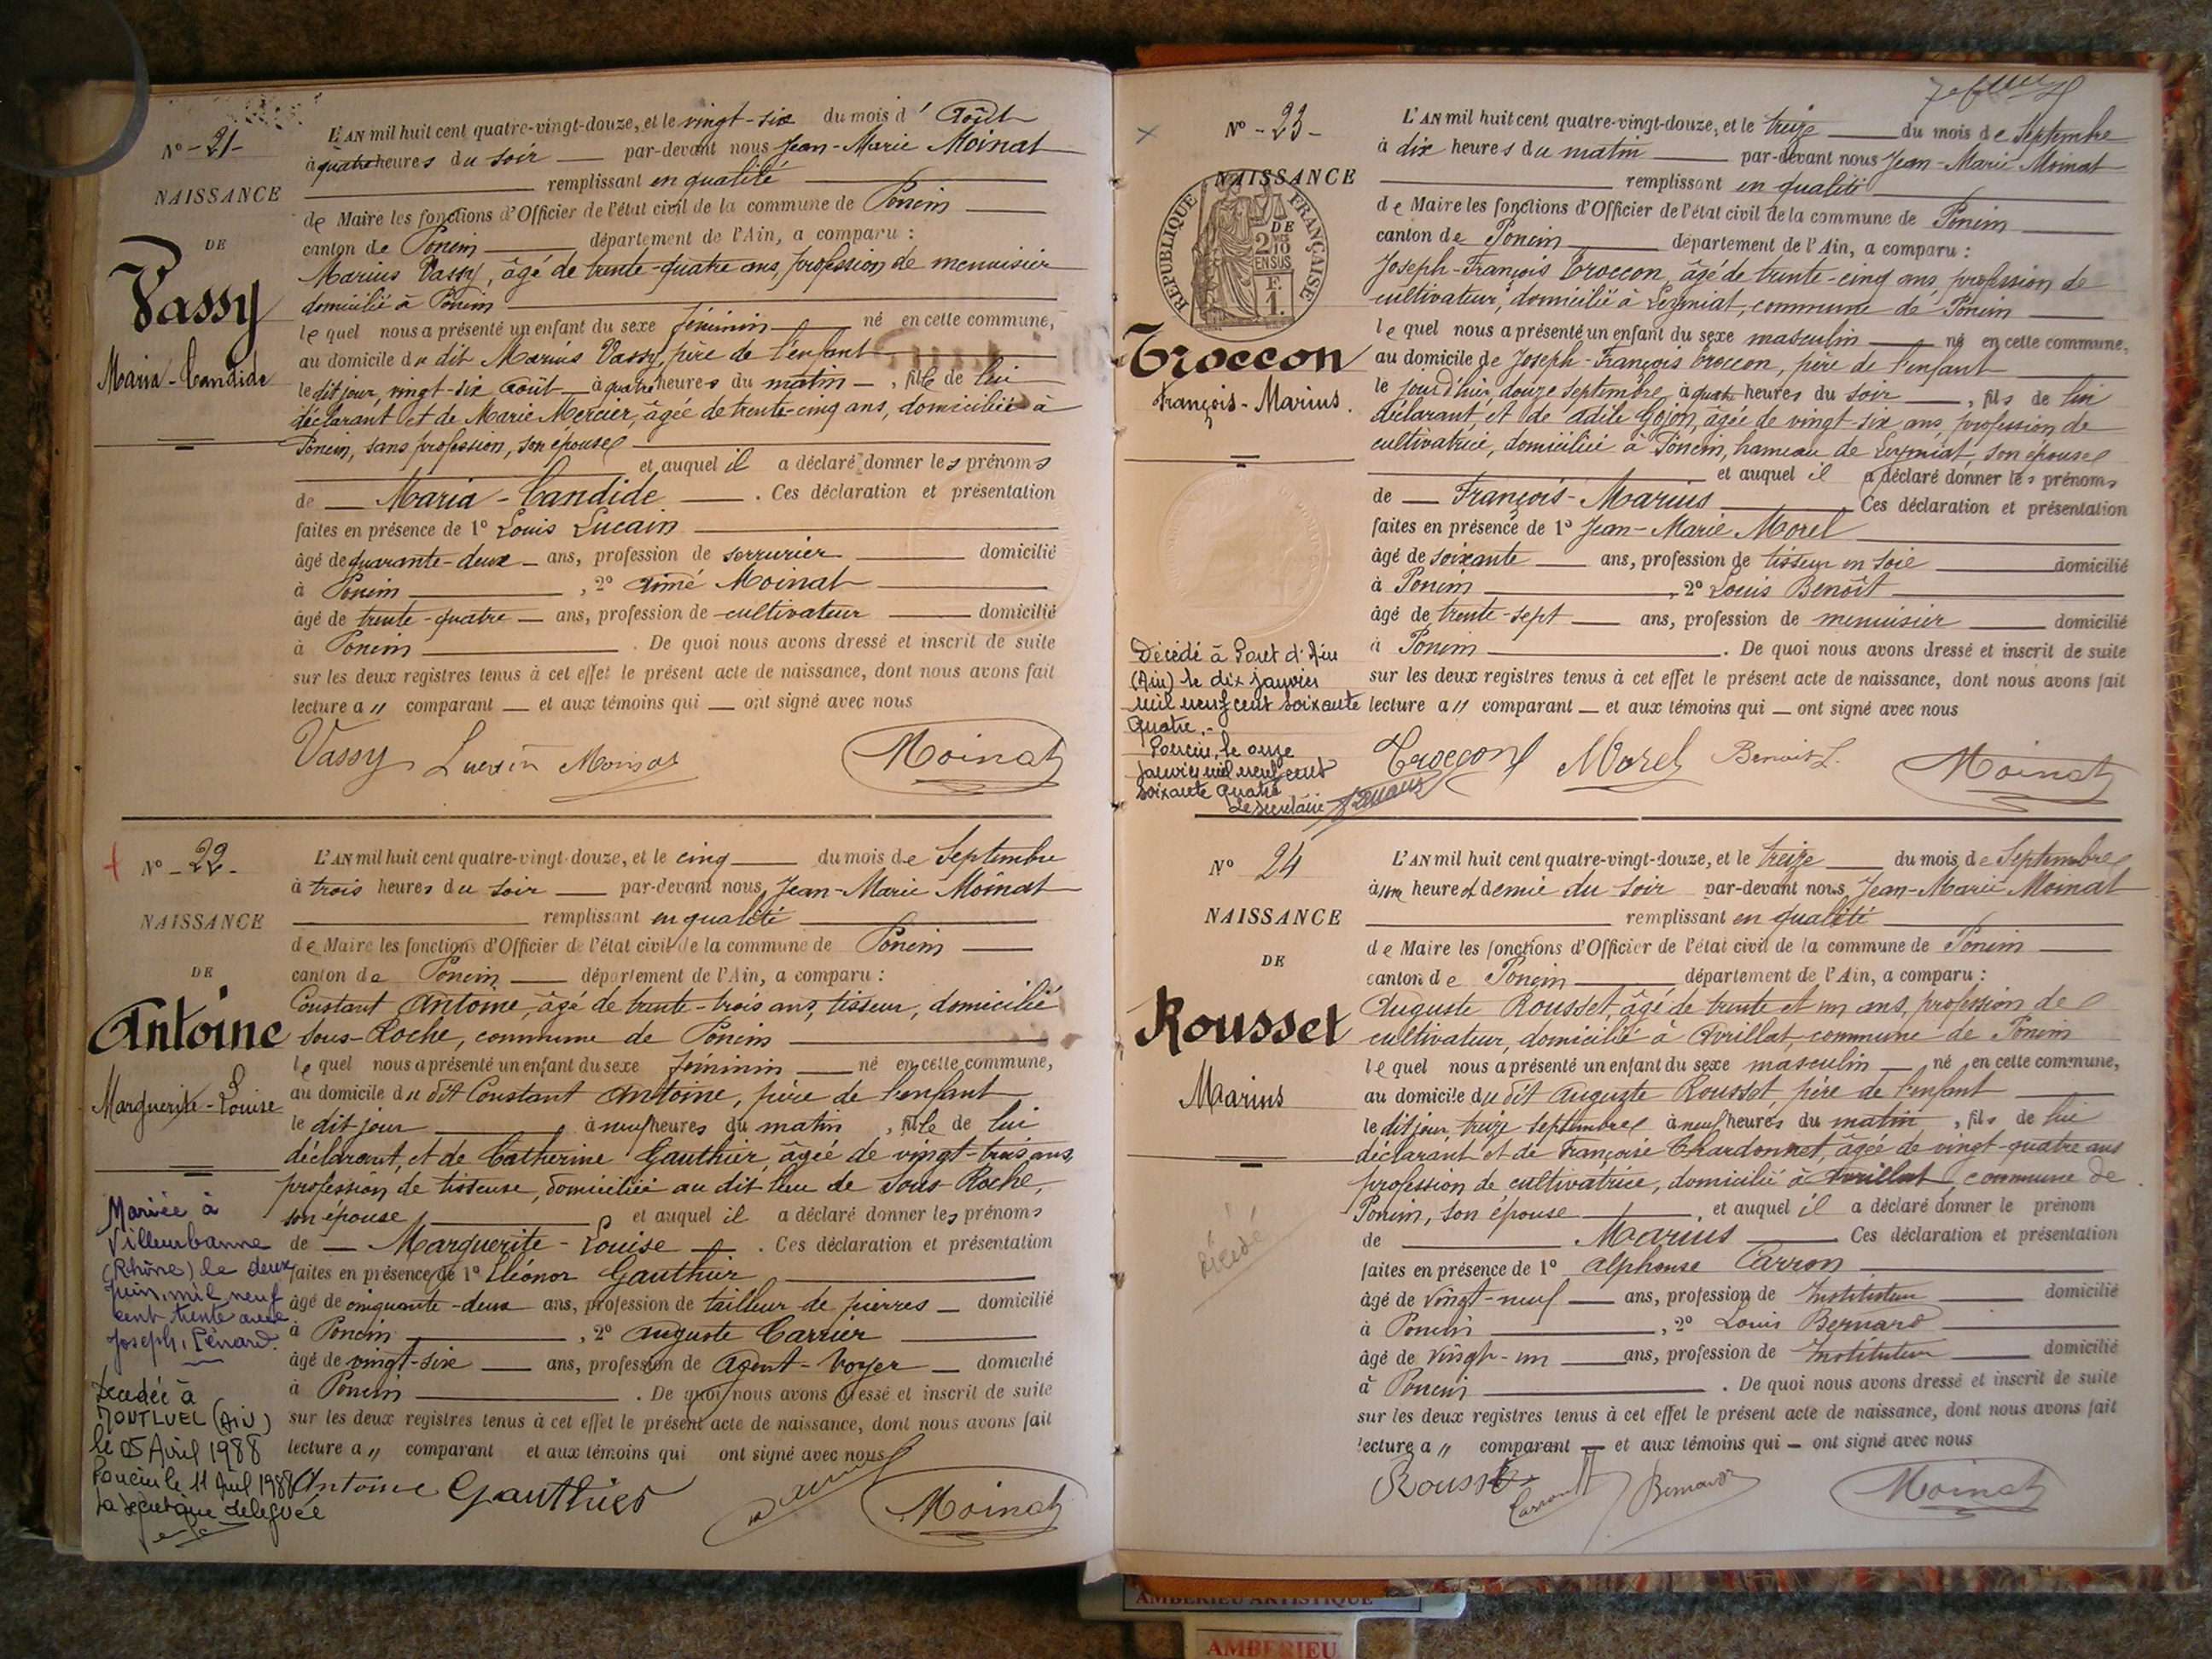 N° - 21 -
NAISSANCE
DE
Vassy
Maria-Candide
L'AN mil huit cent quatre-vingt-douze, et le vingt-six du mois d' Août
à quatre heures du soir — par-devant nous Jean-Marie Moinat
remplissant en qualité
de Maire les fonctions d'Officier de l'état civil de la commune de Poncin
canton de Poncin département de l'Ain, a comparu :
Marius Vassy, âgé de trente-quatre ans, profession de menuisier
domicilié à Poncin
lequel nous a présenté un enfant du sexe féminin né en cette commune,
au domicile du dit Marius Vassy, père de l'enfant
le dit jour, vingt-six Août à quatre heures du matin, fille de lui
déclarant et de Marie Mercier, âgée de trente-cinq ans, domiciliée à
Poncin, sans profession, son épouse
et auquel il a déclaré donner les prénoms
de — Maria-Candide — . Ces déclaration et présentation
faites en présence de 1° Louis Lucain
âgé de quarante-deux ans, profession de serrurier domicilié
à Poncin , 2° Aimé Moinat
âgé de trente-quatre ans, profession de cultivateur domicilié
à Poncin . De quoi nous avons dressé et inscrit de suite
sur les deux registres tenus à cet effet le présent acte de naissance, dont nous avons fait
lecture a " comparant — et aux témoins qui — ont signé avec nous
Vassy Moinat Moinat
N° - 22 -
NAISSANCE
DE
Antoine
Marguerite-Louise
L'AN mil huit cent quatre-vingt-douze, et le cinq du mois de Septembre
à trois heures du soir — par-devant nous Jean-Marie Moinat
remplissant en qualité
de Maire les fonctions d'Officier de l'état civil de la commune de Poncin
canton de Poncin département de l'Ain, a comparu :
Constant Antoine, âgé de trente-trois ans, tisseur, domicilié
sous-Roche, commune de Poncin
lequel nous a présenté un enfant du sexe féminin né en cette commune,
au domicile du dit Constant Antoine, père de l'enfant
le dit jour à neuf heures du matin, fille de lui
déclarant, et de Catherine Gauthier, âgée de vingt-trois ans,
profession de tisseuse, domiciliée au dit lieu de Sous-Roche,
son épouse et auquel il a déclaré donner les prénoms
de — Marguerite-Louise — . Ces déclaration et présentation
faites en présence de 1° Eléonor Gauthier
âgé de cinquante-deux ans, profession de tailleur de pierres domicilié
à Poncin , 2° Auguste Carrier
âgé de vingt-six ans, profession de Agent-Voyer domicilié
à Poncin . De quoi nous avons dressé et inscrit de suite
sur les deux registres tenus à cet effet le présent acte de naissance, dont nous avons fait
lecture a " comparant et aux témoins qui ont signé avec nous
Antoine Gauthier Moinat
Mariée à
Villeurbanne
(Rhône) le deux
juin, mil neuf
cent trente avec
Joseph, Pénard.
Décédée à
MONTLUEL (AIN)
le 05 Avril 1988
Poncin le 11 Avril 1988
La déleguée
N° - 23 -
NAISSANCE
RÉPUBLIQUE FRANÇAISE
DE
2/10 EN SUS
1 F.
Troccon
François-Marius.
L'AN mil huit cent quatre-vingt-douze, et le treize du mois de Septembre
à dix heures du matin par-devant nous Jean-Marie Moinat
remplissant en qualité
de Maire les fonctions d'Officier de l'état civil de la commune de Poncin
canton de Poncin département de l'Ain, a comparu :
Joseph-François Troccon, âgé de trente-cinq ans, profession de
cultivateur, domicilié à Leymiat, commune de Poncin
lequel nous a présenté un enfant du sexe masculin né en cette commune,
au domicile de Joseph-François Troccon, père de l'enfant
le jour d'hier, douze septembre, à quatre heures du soir, fils de lui
déclarant, et de Adèle Gojon, âgée de vingt-six ans, profession de
cultivatrice, domiciliée à Poncin, hameau de Leymiat, son épouse
et auquel il a déclaré donner les prénoms
de — François-Marius Ces déclaration et présentation
faites en présence de 1° Jean-Marie Morel
âgé de soixante ans, profession de tisseur en soie domicilié
à Poncin , 2° Louis Benoît
âgé de trente-sept ans, profession de menuisier domicilié
à Poncin . De quoi nous avons dressé et inscrit de suite
sur les deux registres tenus à cet effet le présent acte de naissance, dont nous avons fait
lecture a " comparant — et aux témoins qui — ont signé avec nous
Troccon Morel Benoit L. Moinat
Décédé à Pont d'Ain
(Ain) le dix janvier
mil neuf cent soixante
quatre.-
Poncin, le onze
janvier mil neuf cent
soixante quatre
Le secrétaire
N° 24
NAISSANCE
DE
Rousset
Marius
décédé
L'AN mil huit cent quatre-vingt-douze, et le treize du mois de Septembre
à une heure et demie du soir par-devant nous Jean-Marie Moinat
remplissant en qualité
de Maire les fonctions d'Officier de l'état civil de la commune de Poncin
canton de Poncin département de l'Ain, a comparu :
Auguste Rousset, âgé de trente et un ans, profession de
cultivateur, domicilié à Avrillat, commune de Poncin
lequel nous a présenté un enfant du sexe masculin né en cette commune,
au domicile du dit Auguste Rousset, père de l'enfant
le dit jour, treize septembre à neuf heures du matin, fils de lui
déclarant et de Françoise Chardonnet, âgée de vingt-quatre ans
profession de cultivatrice, domicilié à Avrillat, commune de
Poncin, son épouse , et auquel il a déclaré donner le prénom
de Marius Ces déclaration et présentation
faites en présence de 1° Alphonse Carron
âgé de vingt-neuf ans, profession de Instituteur domicilié
à Poncin , 2° Louis Bernard
âgé de vingt-un ans, profession de Instituteur domicilié
à Poncin . De quoi nous avons dressé et inscrit de suite
sur les deux registres tenus à cet effet le présent acte de naissance, dont nous avons fait
lecture a " comparant — et aux témoins qui — ont signé avec nous
Rousset Carron Bernard Moinat
AMBERIEU ARTISTIQUE
AMBERIEU